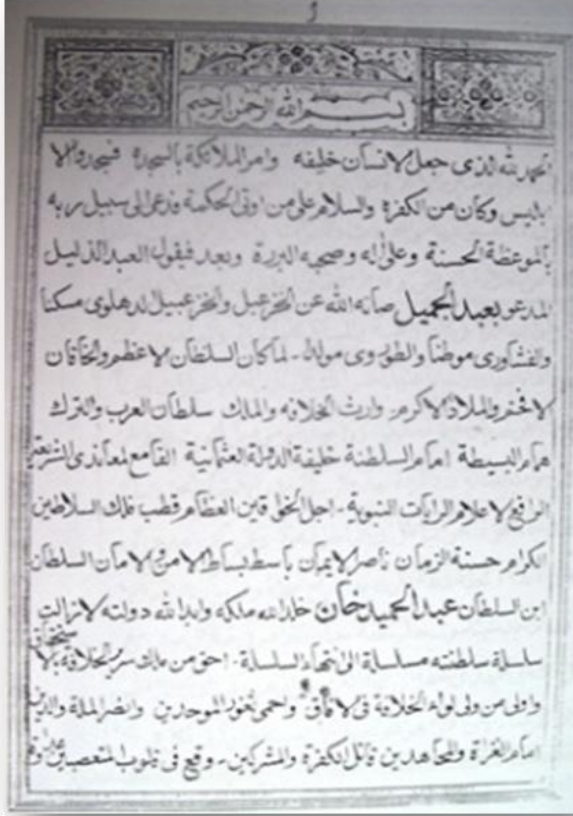 بسم الله الرحمن الرحيم
الحمد لله الذی جعل الانسان خليفه وامر الملائكة بالسجدة فسجدوا الا
ابليس وكان من الكفرة والسلام علی من اوتی الحكمة ودعی الی سبيل ربه
بالموعظة الحسنة وعلی اله وصحبه البررة وبعد فيقول العبد الذليل
المدعو بعبد الجميل صانه الله عن الخزعبل والخزعبيل الدهلوی مسكنا
والفشاوری موطنا والطوروی مولدا - لما كان السلطان الاعظم والخاقان
الافخم والملاذ الاكرم وارث الخلافه والملك سلطان العرب والترك
همام البسيطة امام السلطنة خليفة الدولة العثمانية القامع لمعاندی الشريعة
الرافع لاعلام الرايات النبوية - اجل الخواقين العظام قطب فلك السلاطين
الكرام حسنة الزمان ناصر الايمان باسط بساط الامن والامان السلطان
ابن السلطان عبد الحميد خان خلد الله ملكه وابد الله دولته لا زالت
سلسلة سلطنته مسلسلة الی انتهاء السلسلة - احق من ملك سرير الخلافة بالاستحقاق
واولی من ولی لواء الخلافة فی الافاق واحمی ثغور الموحدين وانصر الملة والدين
امام الغزاة والمجاهدين قاتل الكفرة والمشركين - وقع فی قلوب المتعصبين